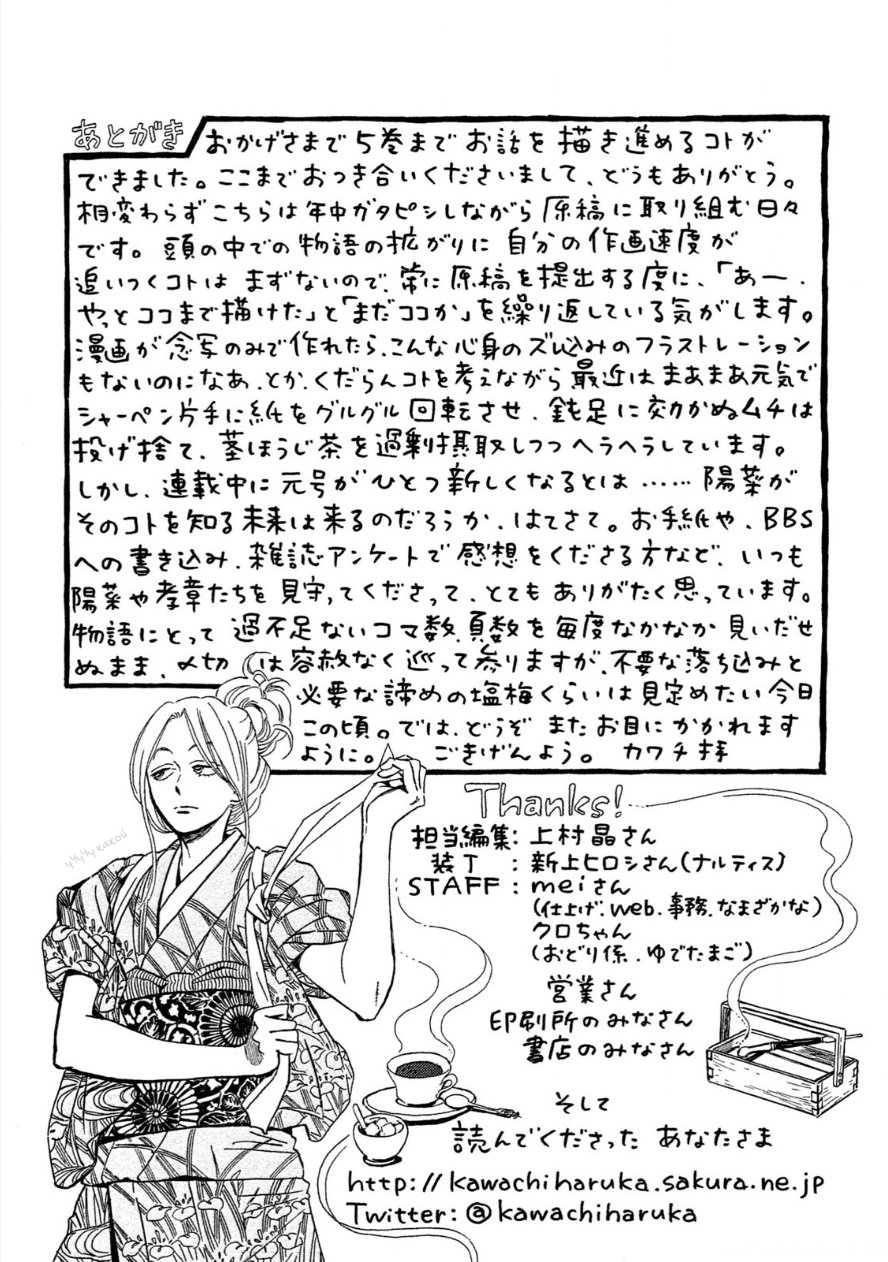 あとがき
おかげさまで5巻までお話を描き進めるコトが
できました。ここまでおつき合いくださいまして、どうもありがとう。
相変わらずこちらは年中ガタピシしながら原稿に取り組む日々
です。頭の中での物語の拡がりに自分の作画速度が
追いつくコトはまずないので、常に原稿を提出する度に、「あー、
やっとココまで描けた」と「まだココか」を繰り返している気がします。
漫画が念写のみで作れたら、こんな心身のズレ込みのフラストレーション
もないのになあ、とか、くだらんコトを考えながら最近はまあまあ元気で
シャーペン片手に紙をグルグル回転させ、鈍足に効かぬムチは
投げ捨て、茎ほうじ茶を過剰摂取しつつヘラヘラしています。
しかし、連載中に元号がひとつ新しくなるとは……陽菜が
そのコトを知る未来は来るのだろうか、はてさて。お手紙や、BBS
への書き込み、雑誌アンケートで感想をくださる方など、いつも
陽菜や孝章たちを見守ってくださって、とてもありがたく思っています。
物語にとって過不足ないコマ数、頁数を毎度なかなか見いだせ
ぬまま、〆切は容赦なく巡って参りますが、不要な落ち込みと
必要な諦めの塩梅くらいは見定めたい今日
この頃。では、どうぞまたお目にかかれます
ように。ごきげんよう。カワチ拝
Thanks!
担当編集:上村晶さん
装丁:新上ヒロシさん(ナルティス)
STAFF:meiさん
(仕上げ、web、事務、なまざかな)
クロちゃん
(おどり係、ゆでたまご)
営業さん
印刷所のみなさん
書店のみなさん
そして
読んでくださった あなたさま
http://kawachiharuka.sakura.ne.jp
Twitter:@kawachiharuka